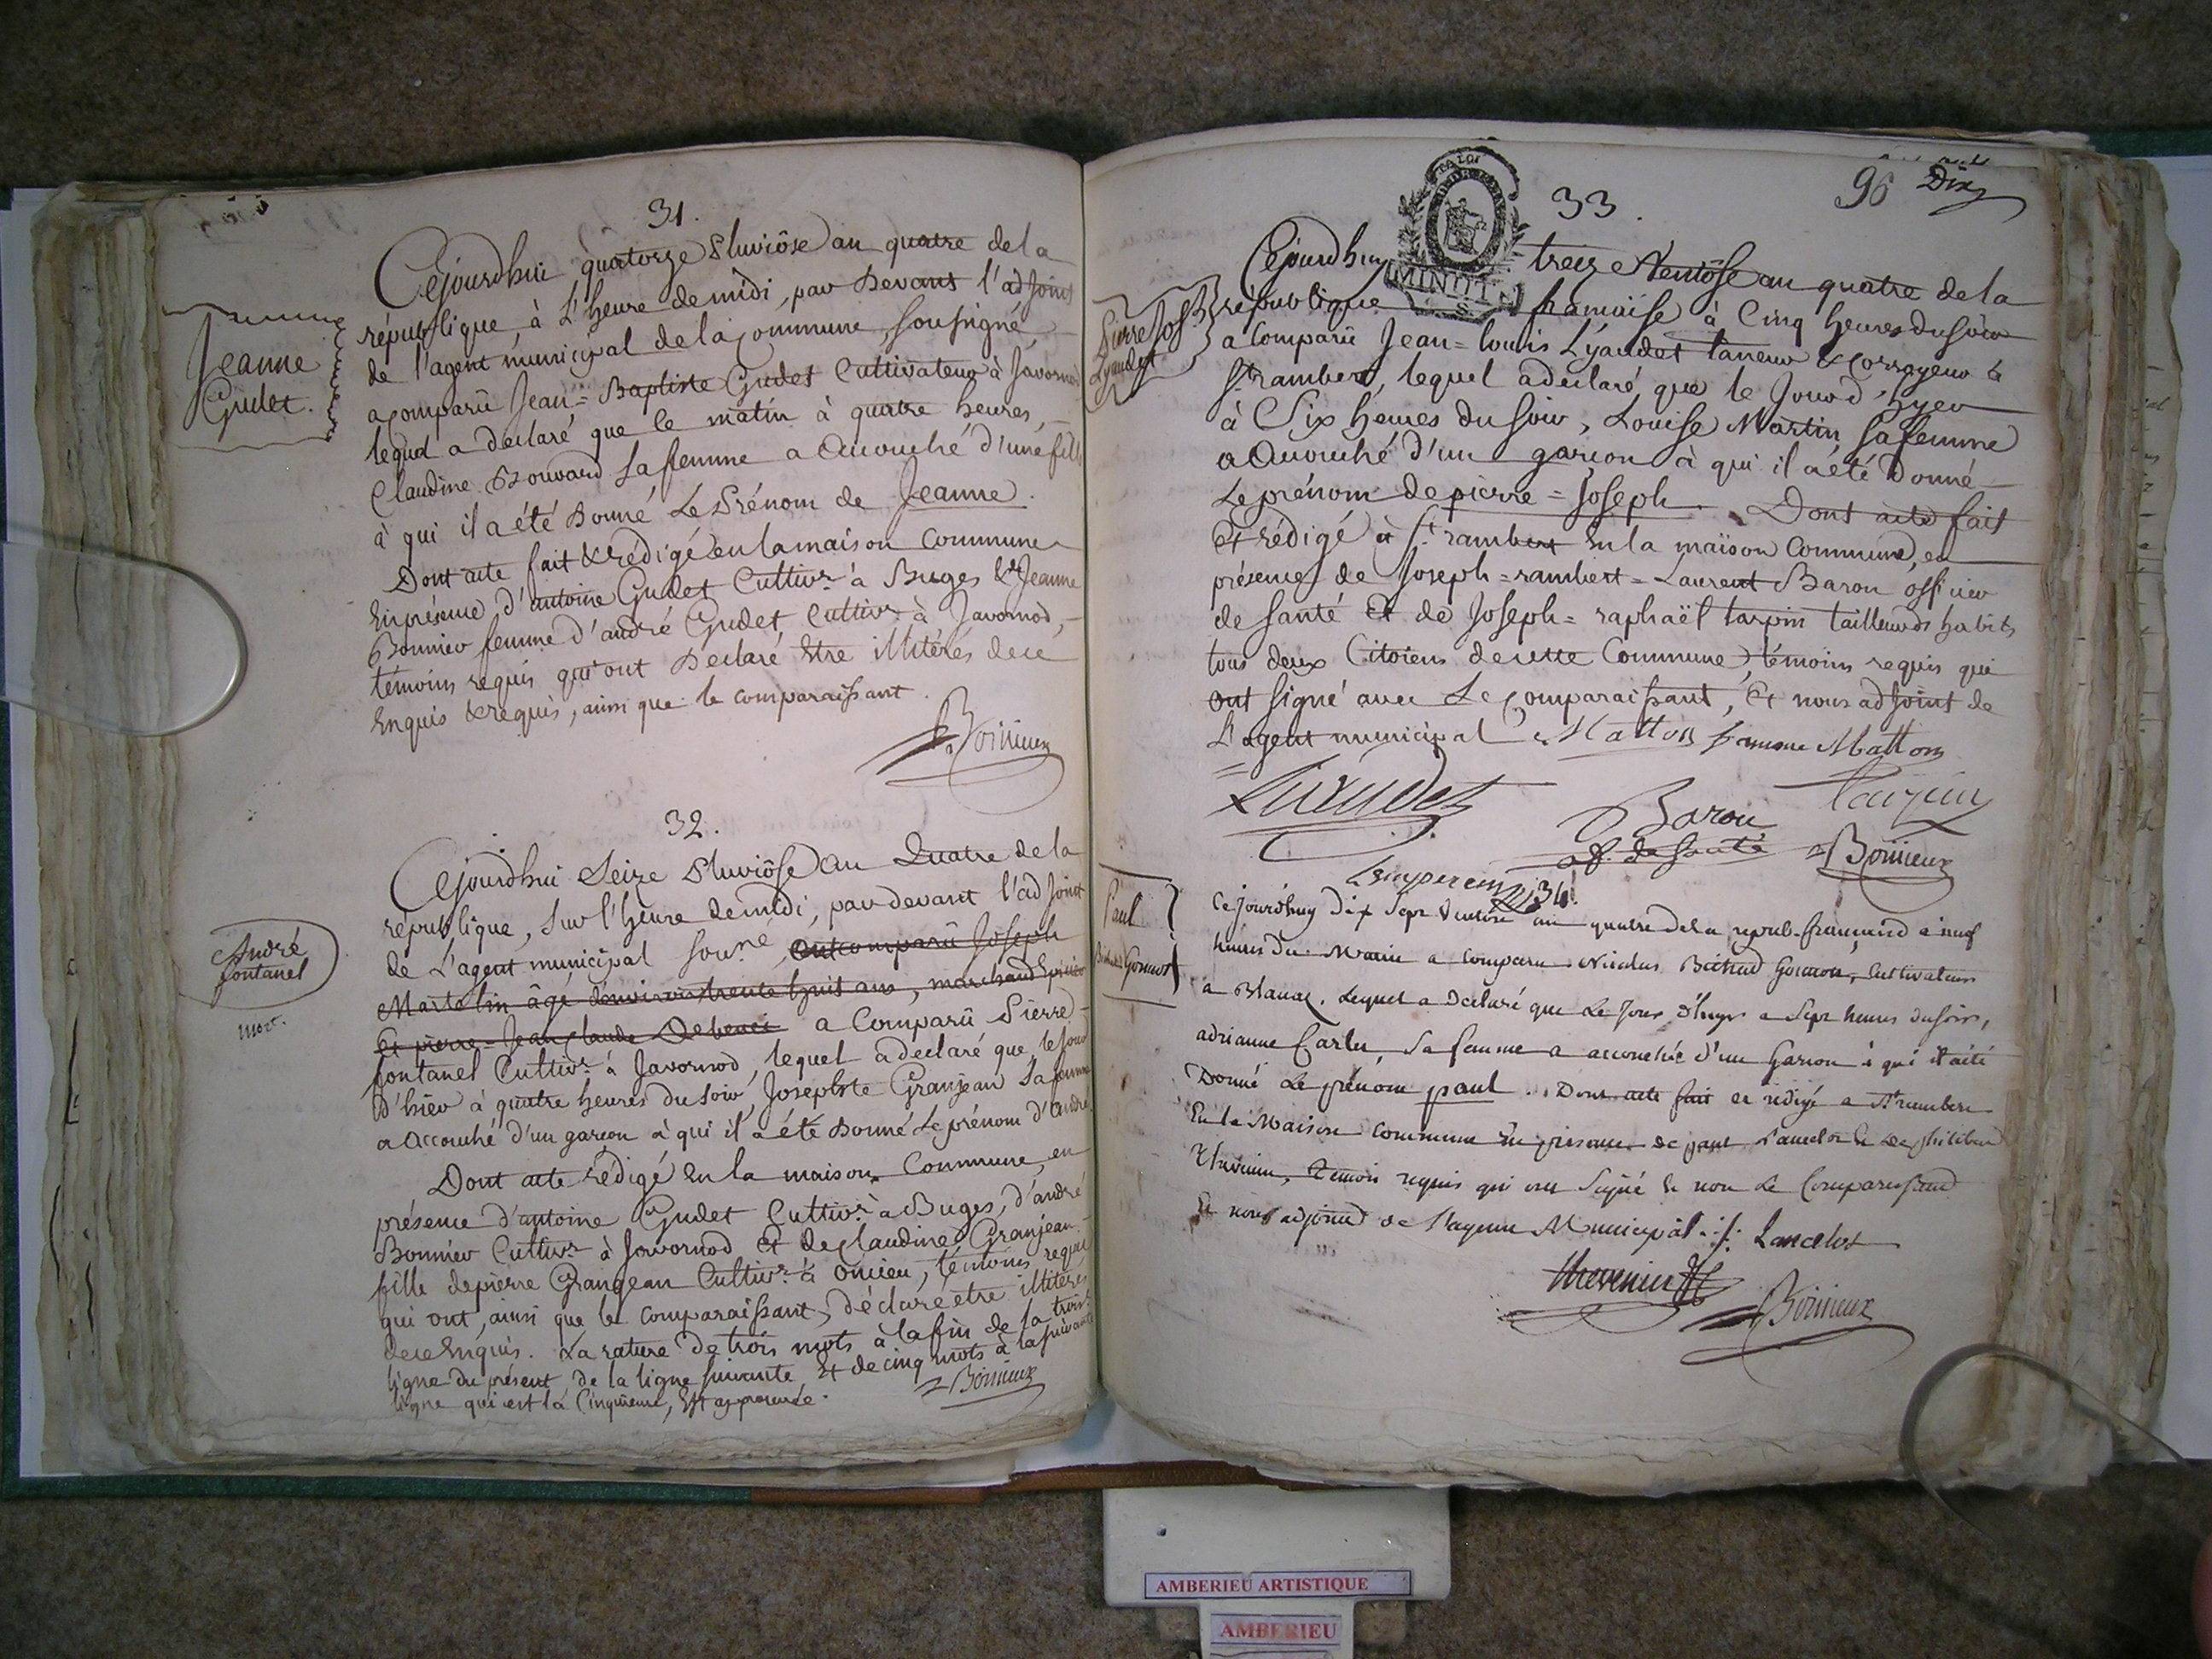 31.
Cejourdhui quatorze Pluviôse an quatre de la
république, à L'heure de midi, par Devant l'adjoint
de l'agent municipal de la Commune, soussigné
a comparû Jean=Baptiste Gudet Cultivateur à Javornod
lequel a declaré que le matin à quatre heures,
Claudine Bouvard sa femme a Accouché d'une fille
à qui il a été Donné Le Prénom de Jeanne.
Dont acte fait & rédigé en la maison Commune
En présence d'antoine Gudet Cultivr. à Buges & de Jeanne
Bonnier femme d'andré Gudet Cultivr. à Javornod,
témoins requis qui ont Declaré Etre illitérés de ce
Enquis & requis, ainsi que le comparaissant.
Boinieux
Jeanne
Gudet.
32.
Cejourdhui Seize Pluviôse an Quatre de la
république, sur l'heure de midi, par devant l'adjoint
de L'agent municipal sous.né, ont comparû Joseph
Martelin âgé d'environ trente huit ans, marchand Epicier
Et pierre=Jean Claude a Comparû Pierre
fontanel Cultivr. à Javornod, lequel a declaré que le jour
D'hier à quatre heures du soir, Josephte Granjean sa femme
a accouché d'un garçon à qui il a été Donné Le prénom d'andré
Dont acte rédigé En la maison Commune, en
présence d'antoine Gudet Cultivr. à Buges, d'andré
Bonnier Cultivr à Javornod Et de Claudine Granjean
fille de pierre Grangean Cultivr. à oncieu, témoins requis
qui ont, ainsi que le comparaissant, déclaré être illitérés
de ce Enquis. La rature de trois mots à la fin de la trois
ligne du présent de la ligne suivante, Et de cinq mots à la suivante
ligne qui est la Cinquieme, Est approuvée.
Boinieux
André
fontanel
mort.
33.
96 Dix
LA LOI
Cejourdhuy treize Ventôse an quatre de la
république française à Cinq heures du soir
a Comparû Jean=Louis Lyaudet taneur & corroyeur à
St. rambert, lequel a declaré que le Jour d'hyer
à Six heures du soir, Louise Martin sa femme
a Accouché d'un garçon à qui il a été Donné
Le prénom de pierre=Joseph. Dont acte fait
Et rédigé à St. rambert En la maison Commune, en
présence de Joseph=rambert=Laurent Baron officier
de santé Et de Joseph=raphaël tarpin tailleur ds habits
tous deux Citoiens de cette Commune, témoins requis qui
ont signé avec Le Comparaissant, Et nous adjoint de
L'agent municipal Matton femme Matton
Baron
of. de santé
Boinieux
Pierre Josh.
Lyaudet
34.
Cejourdhuy Dix Sept Ventose an quatre de la repub. francaise a neuf
heures du Matin a comparu Nicolas Gonnot, Cultivateur
a Blanaz. Lequel a declaré que Le Jour d'huyr a Sept heures du soir,
adrianne Carler, Sa femme a accouchée d'un Garcon à qui il a été
Donné Le prénom paul. Dont acte fait et redigé a St rambert
En la Maison commune En presence de paul Lancelot & de philibert
Thevenin, Temoin requis qui ont Signé & non Le Comparaissant
Et nous adjoind de l'agent Municipal ./. Lancelot
thevenin
Boinieux
Paul
Gonnot
AMBERIEU ARTISTIQUE
AMBERIEU